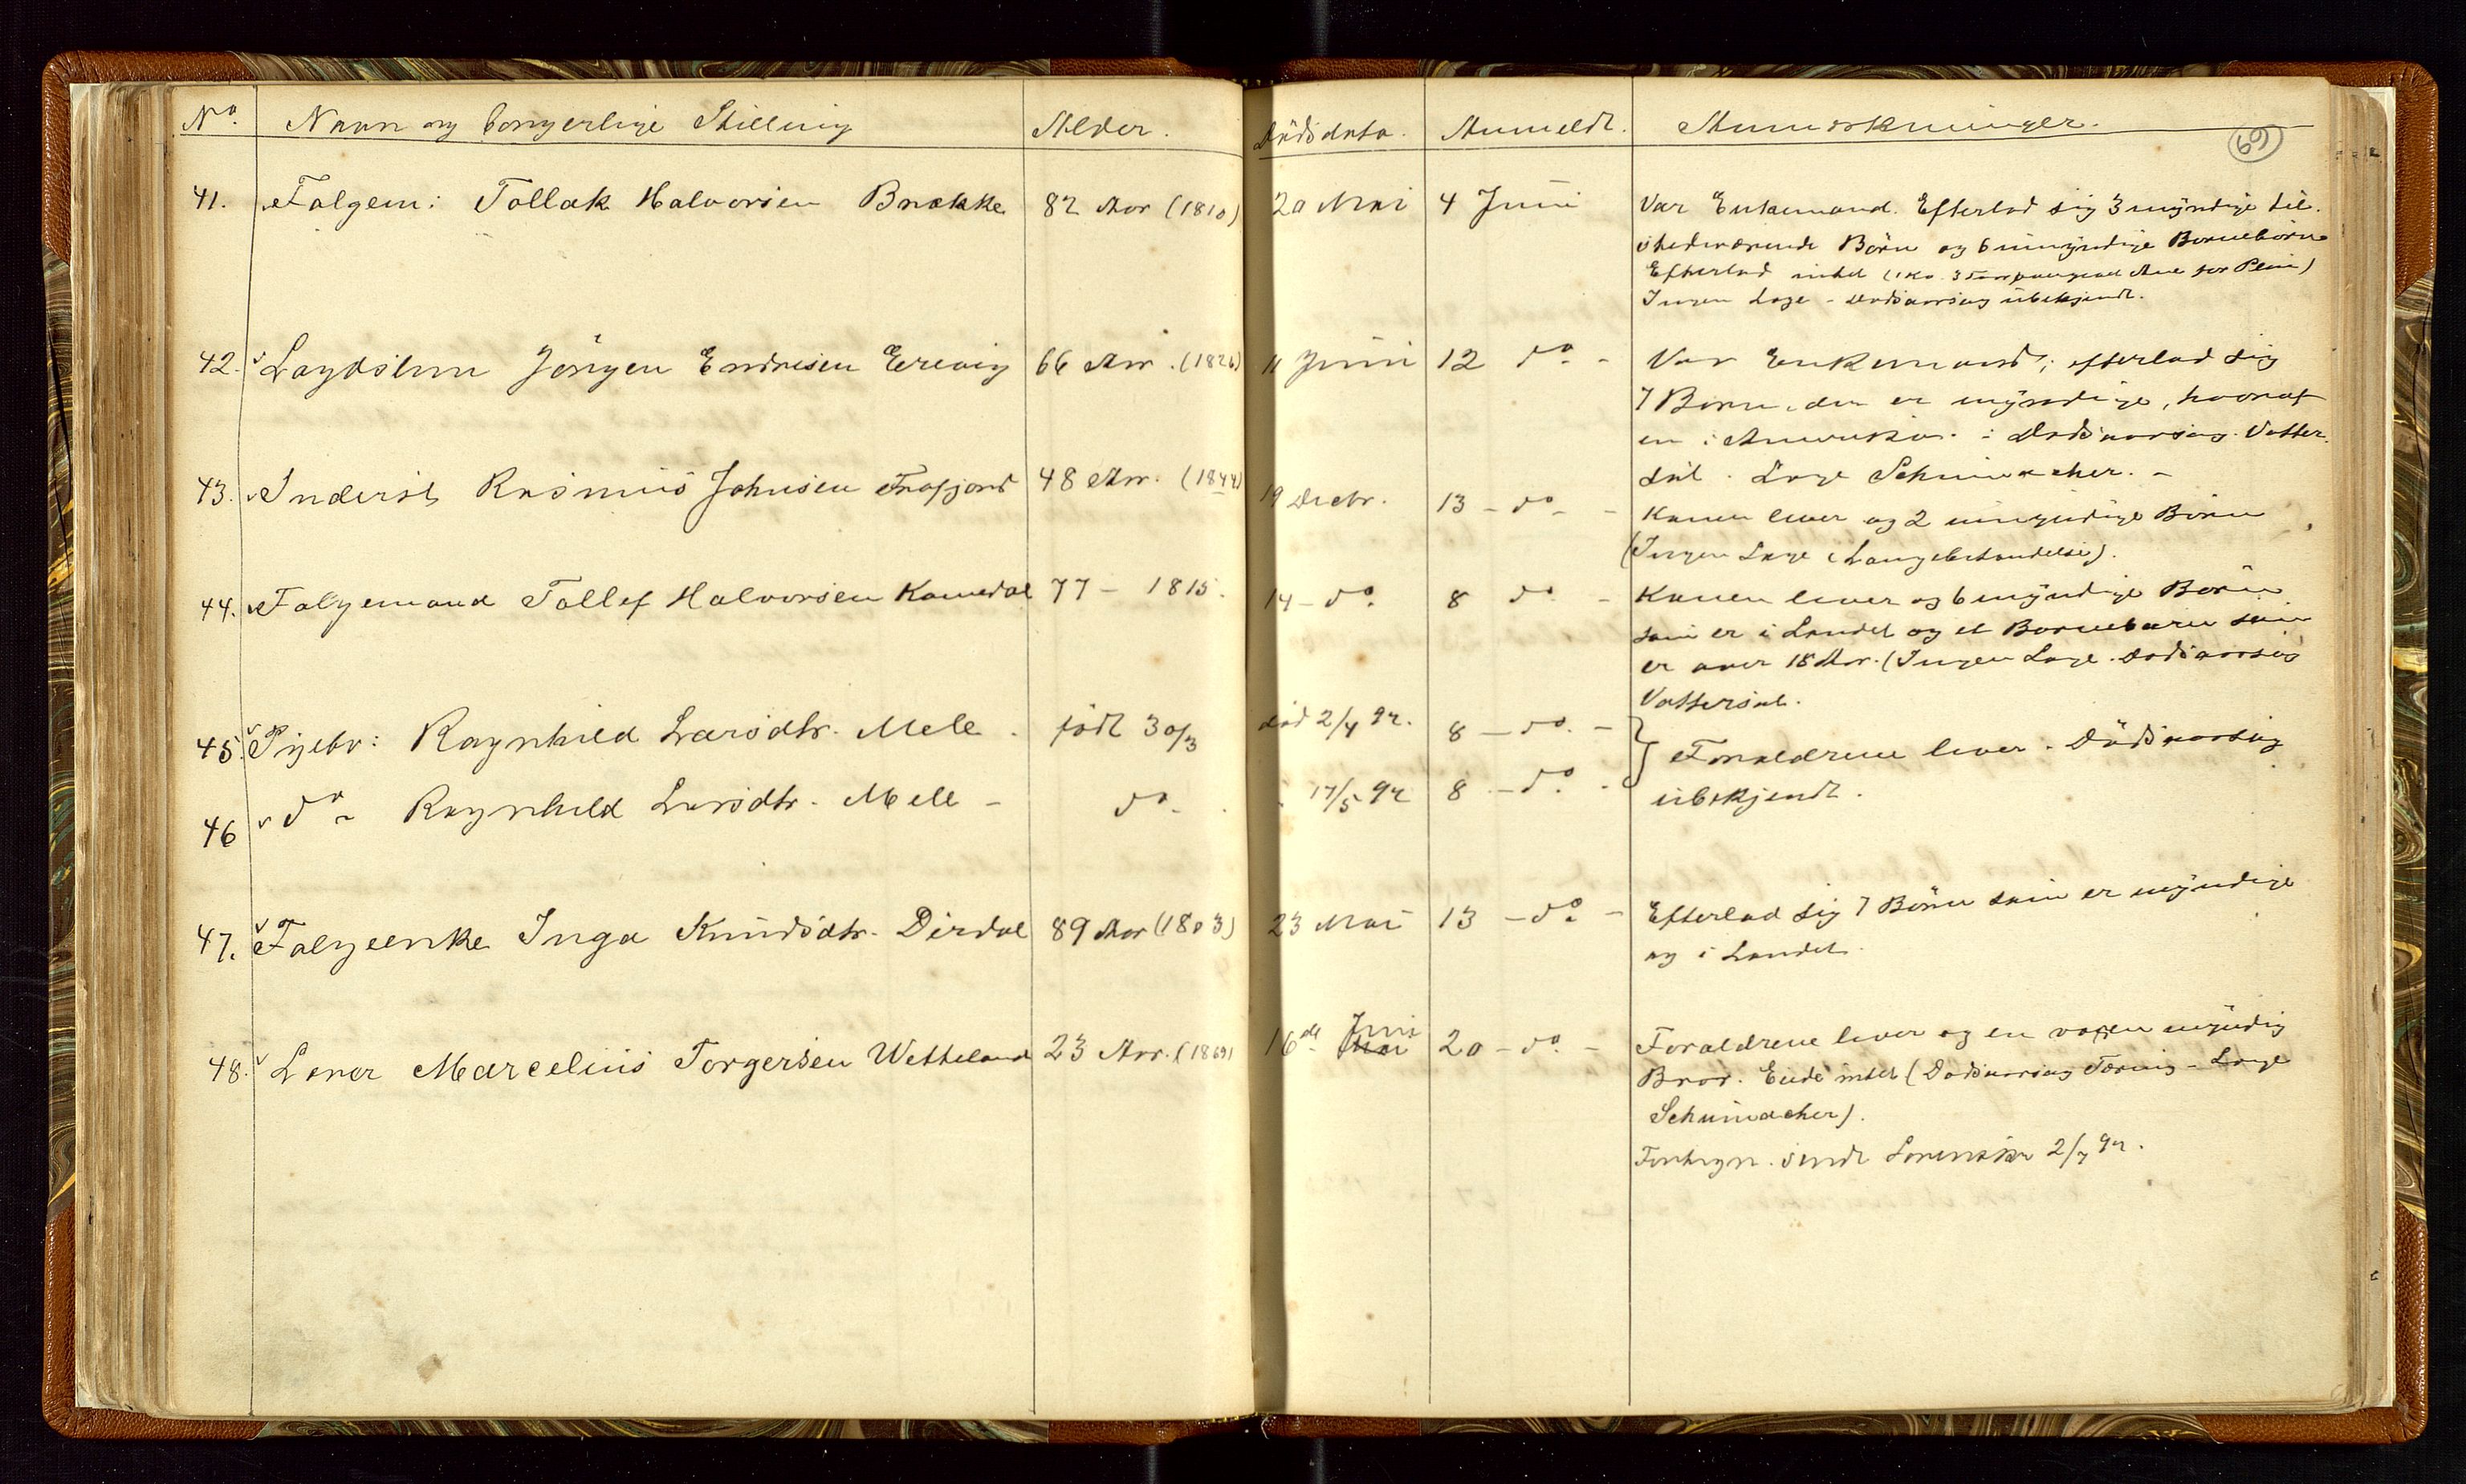 No. Navn og borgerlige Stilling Alder. Dödsdato. Anmeldt. Anmærkninger.
69
41. Folgem: Tollak Halvorsen Brække 82 Aar (1810) 20 Mai 4 Juni Var Enkemand. Efterlod sig 3 myndige til-
stedeværende Börn og 6 umyndige Borneborn
Efterlod intet
Ingen Læge - Dødsaarsag ubekjendt.
42. Lægdslem Jörgen Endresen Erevig 66 Aar. (1826) 11 Juni 12 do - Var Enkemand; efterlod sig
7 Börn, der er myndige, hvoraf
en i Amerika. : Dødsaarsag Vatter-
sot. Læge Schumacher. -
43. Inderst Rasmus Johnsen Frafjord 48 Aar. (1844) 19 Decbr. 13 - do - Konen lever og 2 umyndige Börn
(Ingen Læge
44. Folgemand Tollef Halvorsen Kommedal 77 - 1815. 14 - do. 8 do - Konen lever og 6 myndige Börn
som er i Landet og et Bornebarn som
er over 18 Aar. (Ingen Læge. Dødsaarsag
Vattersot.
45. Pigebr: Ragnhild Larsdtr. Mele. født 30/3 död 2/4 92. 8 - do. - } Forældrene lever. Dödsaarsag
46 do - Ragnhild Larsdtr. Mele - do - 17/5 92 8 - do. - ubekjendt.
47. Folgeenke Inga Knudsdtr. Dirdal 89 Aar (1803) 23 Mai 13 - do - Efterlod sig 7 Börn som er myndige
og i Landet.
48. Lærer Marcelius Torgersen Wetteland 23 Aar. (1869) 16de Juni Mai 20 - do. - Forældrene lever og en voxen myndig
Bror. Eiede intet (Dødsaarsag Tæring - Læge
Schumacher).
sendt 2/7 92.